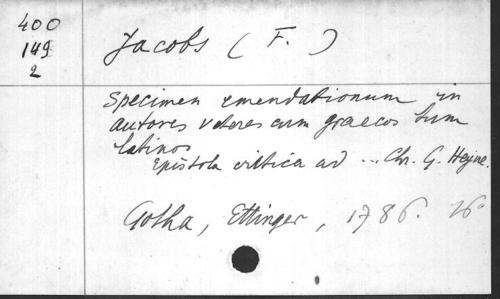 400
149
2
Jacobs (F.)
Specimen emendationum in
autores veteres cum graecos tum
latinos
Epistola critica ad ... Chr. G. Heyne.
Gotha, Ettinger, 1786. 16°